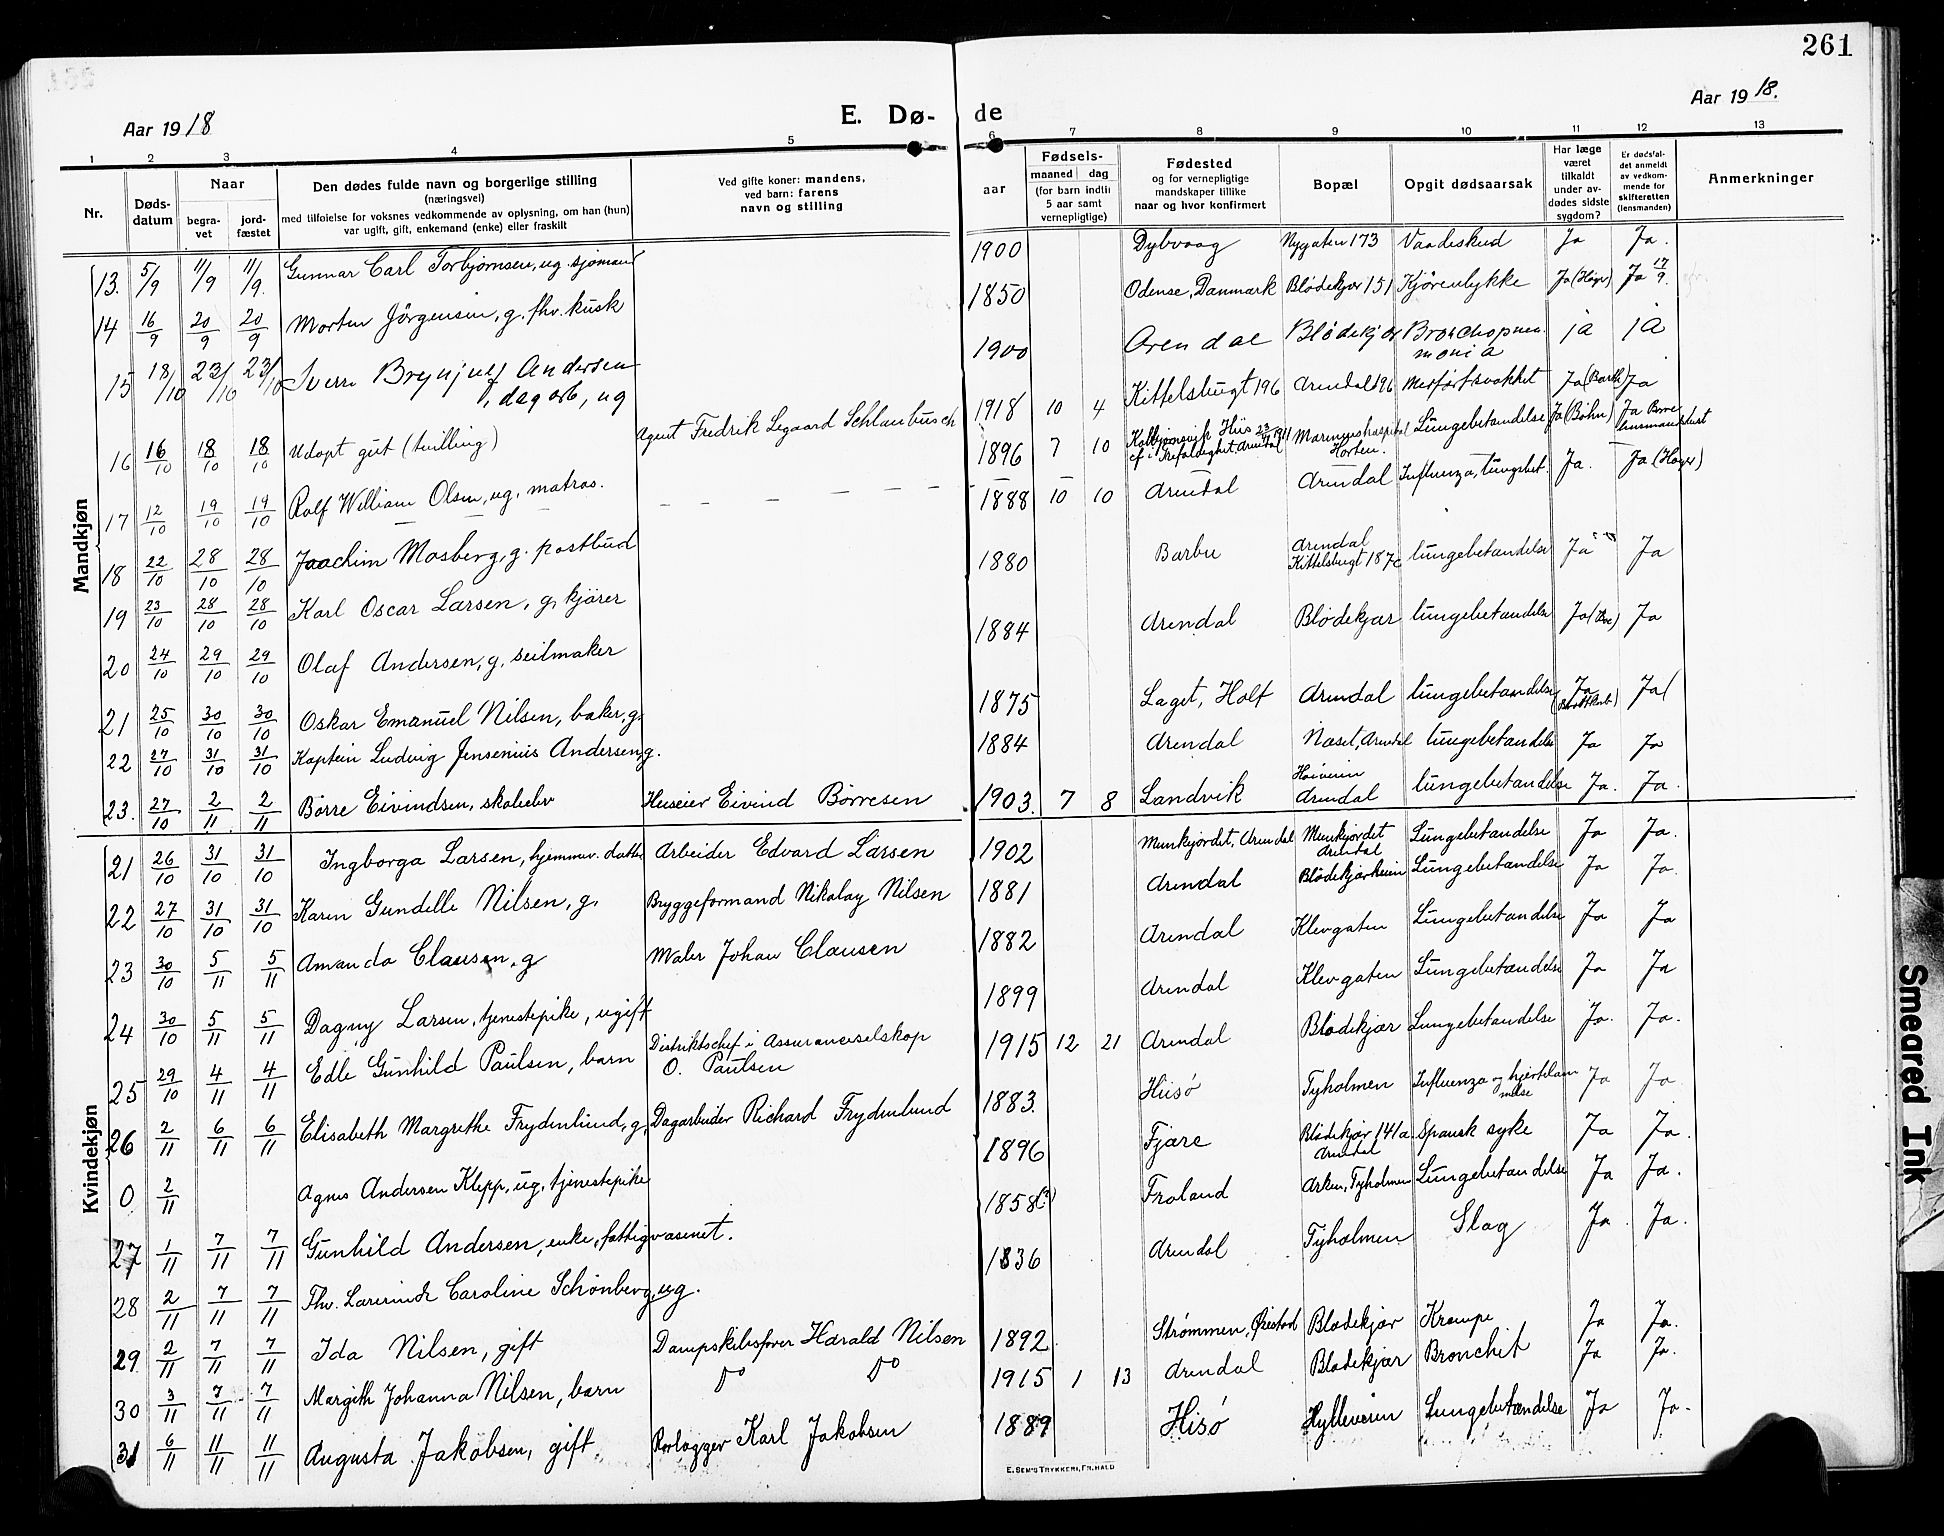 261
Aar 1918
E. Dø-
de
Aar 1918.
1 2 3 4 5 6 7 8 9 10 11 12 13
Nr.
Døds-
datum
Naar
begra-
vet
jord-
fæstet
Den dødes fulde navn og borgerlige stilling
(næringsvei)
med tilføielse for voksnes vedkommende av oplysning, om han (hun)
var ugift, gift, enkemand (enke) eller fraskilt
Ved gifte koner: mandens,
ved barn: farens
navn og stilling
Fødsels-
aar
maaned dag
(for barn indtil
5 aar samt
vernepligtige)
Fødested
og for vernepligtige
mandskaper tillike
naar og hvor konfirmert
Bopæl
Opgit dødsaarsak
Har læge
været
tilkaldt
under av-
dødes sidste
sygdom?
Er dødsfal-
det anmeldt
av vedkom-
mende for
skifteretten
(lensmanden)
Anmerkninger
Mandkjøn
13. 5/9 11/9 11/9. Gunnar Carl Torbjørnsen, ug. sjømand 1900 Dybvaag Nygaten 173 Vaadeskud Ja Ja.
14 16/9 20/9 20/9 Morten Jørgensen, g. fhv. kusk 1850 Odense, Danmark Blødekjær 151 Kjøreulykke Ja 17/9.
15 18/10 23/10 23/10 Sverre Brynjulf Andersen
, dagarb, ug 1900 Arendal Blødekjær Bronchopneu-
monia ja ja
16 16/10 18/10 18/10 Udøpt gut (tvilling) Agent Fredrik Legaard Schlanbusch 1918 10 4 Kittelsbugt 196 Arendal 196 Misførtsvakhet Ja (Barth) Ja
17 12/10 19/10 19/10 Rolf William Olsen, ug. matros. 1896 7 10 Kolbjørnsvik Hisø 23/ 1911
cf. i Trefoldighet. Arendal Marinens hospital
Horten. Lungebetændelse Ja (Bøhn) Ja Borre
lensmandsdist
18 22/10 28/10 28/10 Joachim Mosberg, g. postbud 1888 10 10 Arendal Arendal Influenza, lungebet. Ja. Ja
19 23/10 28/10 28/10 Karl Oscar Larsen, g, kjører 1880 Barbu Arendal
Kittelsbugt 187c lungebetændelse Ja Ja
20 24/10 29/10 29/10 Olaf Andersen, g, seilmaker 1884 Arendal Blødekjær lungebetændelse Ja Ja
21 25/10 30/10 30/10 Oskar Emanuel Nilsen, baker, g. 1875 Laget, Holt Arendal lungebetændelse Ja Ja
22 27/10 31/10 31/10 Kaptein Ludvig Jensenius Andersen, g. 1884 Arendal Næset, Arendal lungebetændelse Ja Ja
23. 27/10 2/11 2/11 Børre Eivindsen, skoleelev Huseier Eivind Børresen 1903. 7 8 Landvik Høiveien
Arendal lungebetændelse Ja. Ja.
Kvindekjøn
21 26/10 31/10 31/10 Ingborga Larsen, hjemmev. datter Arbeider Edvard Larsen 1902 Munkejordet, Arendal Munkejordet
Arendal Lungebetændelse Ja Ja.
22 27/10 31/10 31/10 Karen Gundelle Nilsen, g. Bryggeformand Nikolay Nilsen 1881 Arendal Blødekjærheien Lungebetændelse Ja Ja.
23 30/10 5/11 5/11 Amanda Clausen, g Maler Johan Clausen 1882 Arendal Klevgaten Lungebetændelse Ja Ja
24 30/10 5/11 5/11 Dagny Larsen, tjenestepike, ugift 1899 Arendal Klevgaten Lungebetændelse Ja Ja
25 29/10 4/11 4/11 Edle Gunhild Paulsen, barn Distriktschef i Assuranceselskap
O. Paulsen 1915 12 21 Arendal Blødekjær Lungebetændelse Ja. Ja.
26 2/11 6/11 6/11 Elisabeth Margrethe Frydenlund, g, Dagarbeider Richard Frydenlund 1883. Hisø Tyholmen Influenza og hjertelam-
melse Ja Ja.
0 2/11 Agnes Andersen Klepp, ug, tjenestepike 1896 Fjære Blødekjær 141a.
Arendal Spansk syke Ja Ja.
27 1/11 7/11 7/11 Gunhild Andersen, enke, fattigvæsenet. 1858(?) Froland Arken, Tyholmen Lungebetændelse Ja Ja.
28 2/11 7/11 7/11 Fhv. Lærerinde Caroline Schønberg, ug. 1836 Arendal Tyholmen Slag Ja. Ja.
29 2/11 7/11 7/11 Ida Nilsen, gift Dampskibsfører Harald Nilsen 1892. Strømmen, Øiestad Blødekjær Krampe Ja Ja.
30 3/11 7/11 7/11 Margith Johanna Nilsen, barn Do Do 1915 1 13 Arendal Blødekjær Bronchit Ja Ja.
31 6/11 11/11 11/11 Augusta Jakobsen, gift. Rørlægger Karl Jakobsen 1889 Hisø Hylleveien Lungebetændelse Ja Ja.
E. SEM'S TRYKKERI, FR.HALD
Smeared Ink